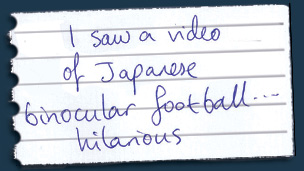 I saw a video
of Japanese
binocular football...
hilarious